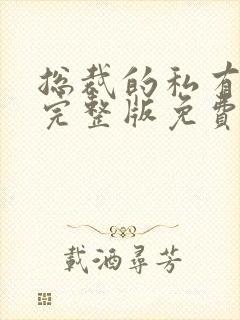 总裁的私有
完整版免費
載酒尋芳